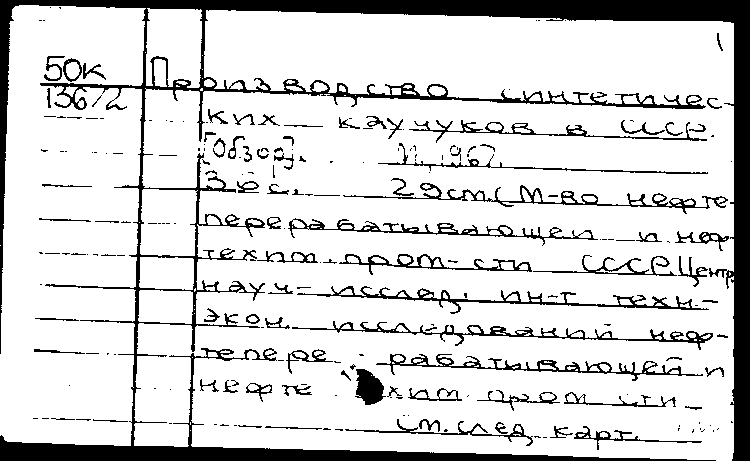 1
50К
136/2
Производство синтетичес-
ких каучуков в СССР.
[Обзор]. М., 1967.
36 с. 29 см. (М-во нефте-
перерабатывающей и неф-
техим. пром-сти СССР. Центр.
науч-исслед. ин-т техн.-
экон. исследований неф-
тепере рабатывающей и
нефте хим пром сти
См. след. карт.